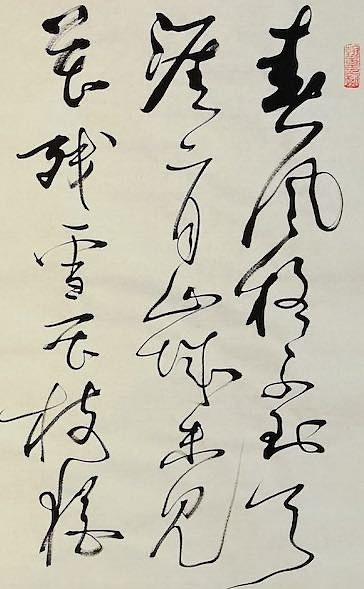 春风疑不到天
涯二月山城未见
花残雪压枝猶